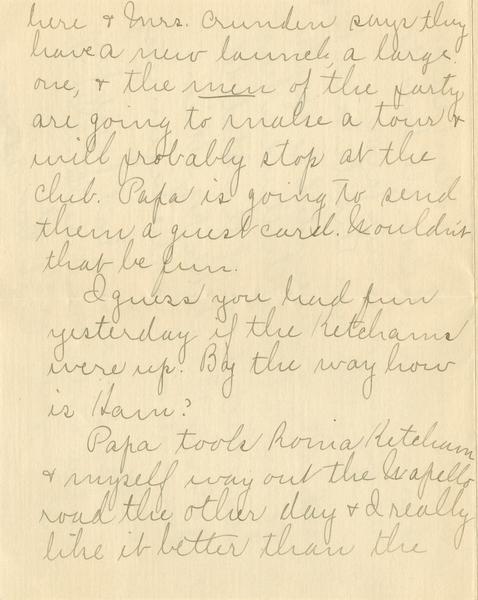 here & Mrs. Crunden says they
have a new launch, a large
one, & the men of the party
are going to make a tour &
will probably stop at the
club. Papa is going to send
them a guest card. Wouldn't
that be fun.
I guess you had fun
yesterday if the Ketchams
were up. By the way how
is Ham?
Papa took Roma Ketcham
& myself way out the Wapello
road the other day & I really
like it better than the